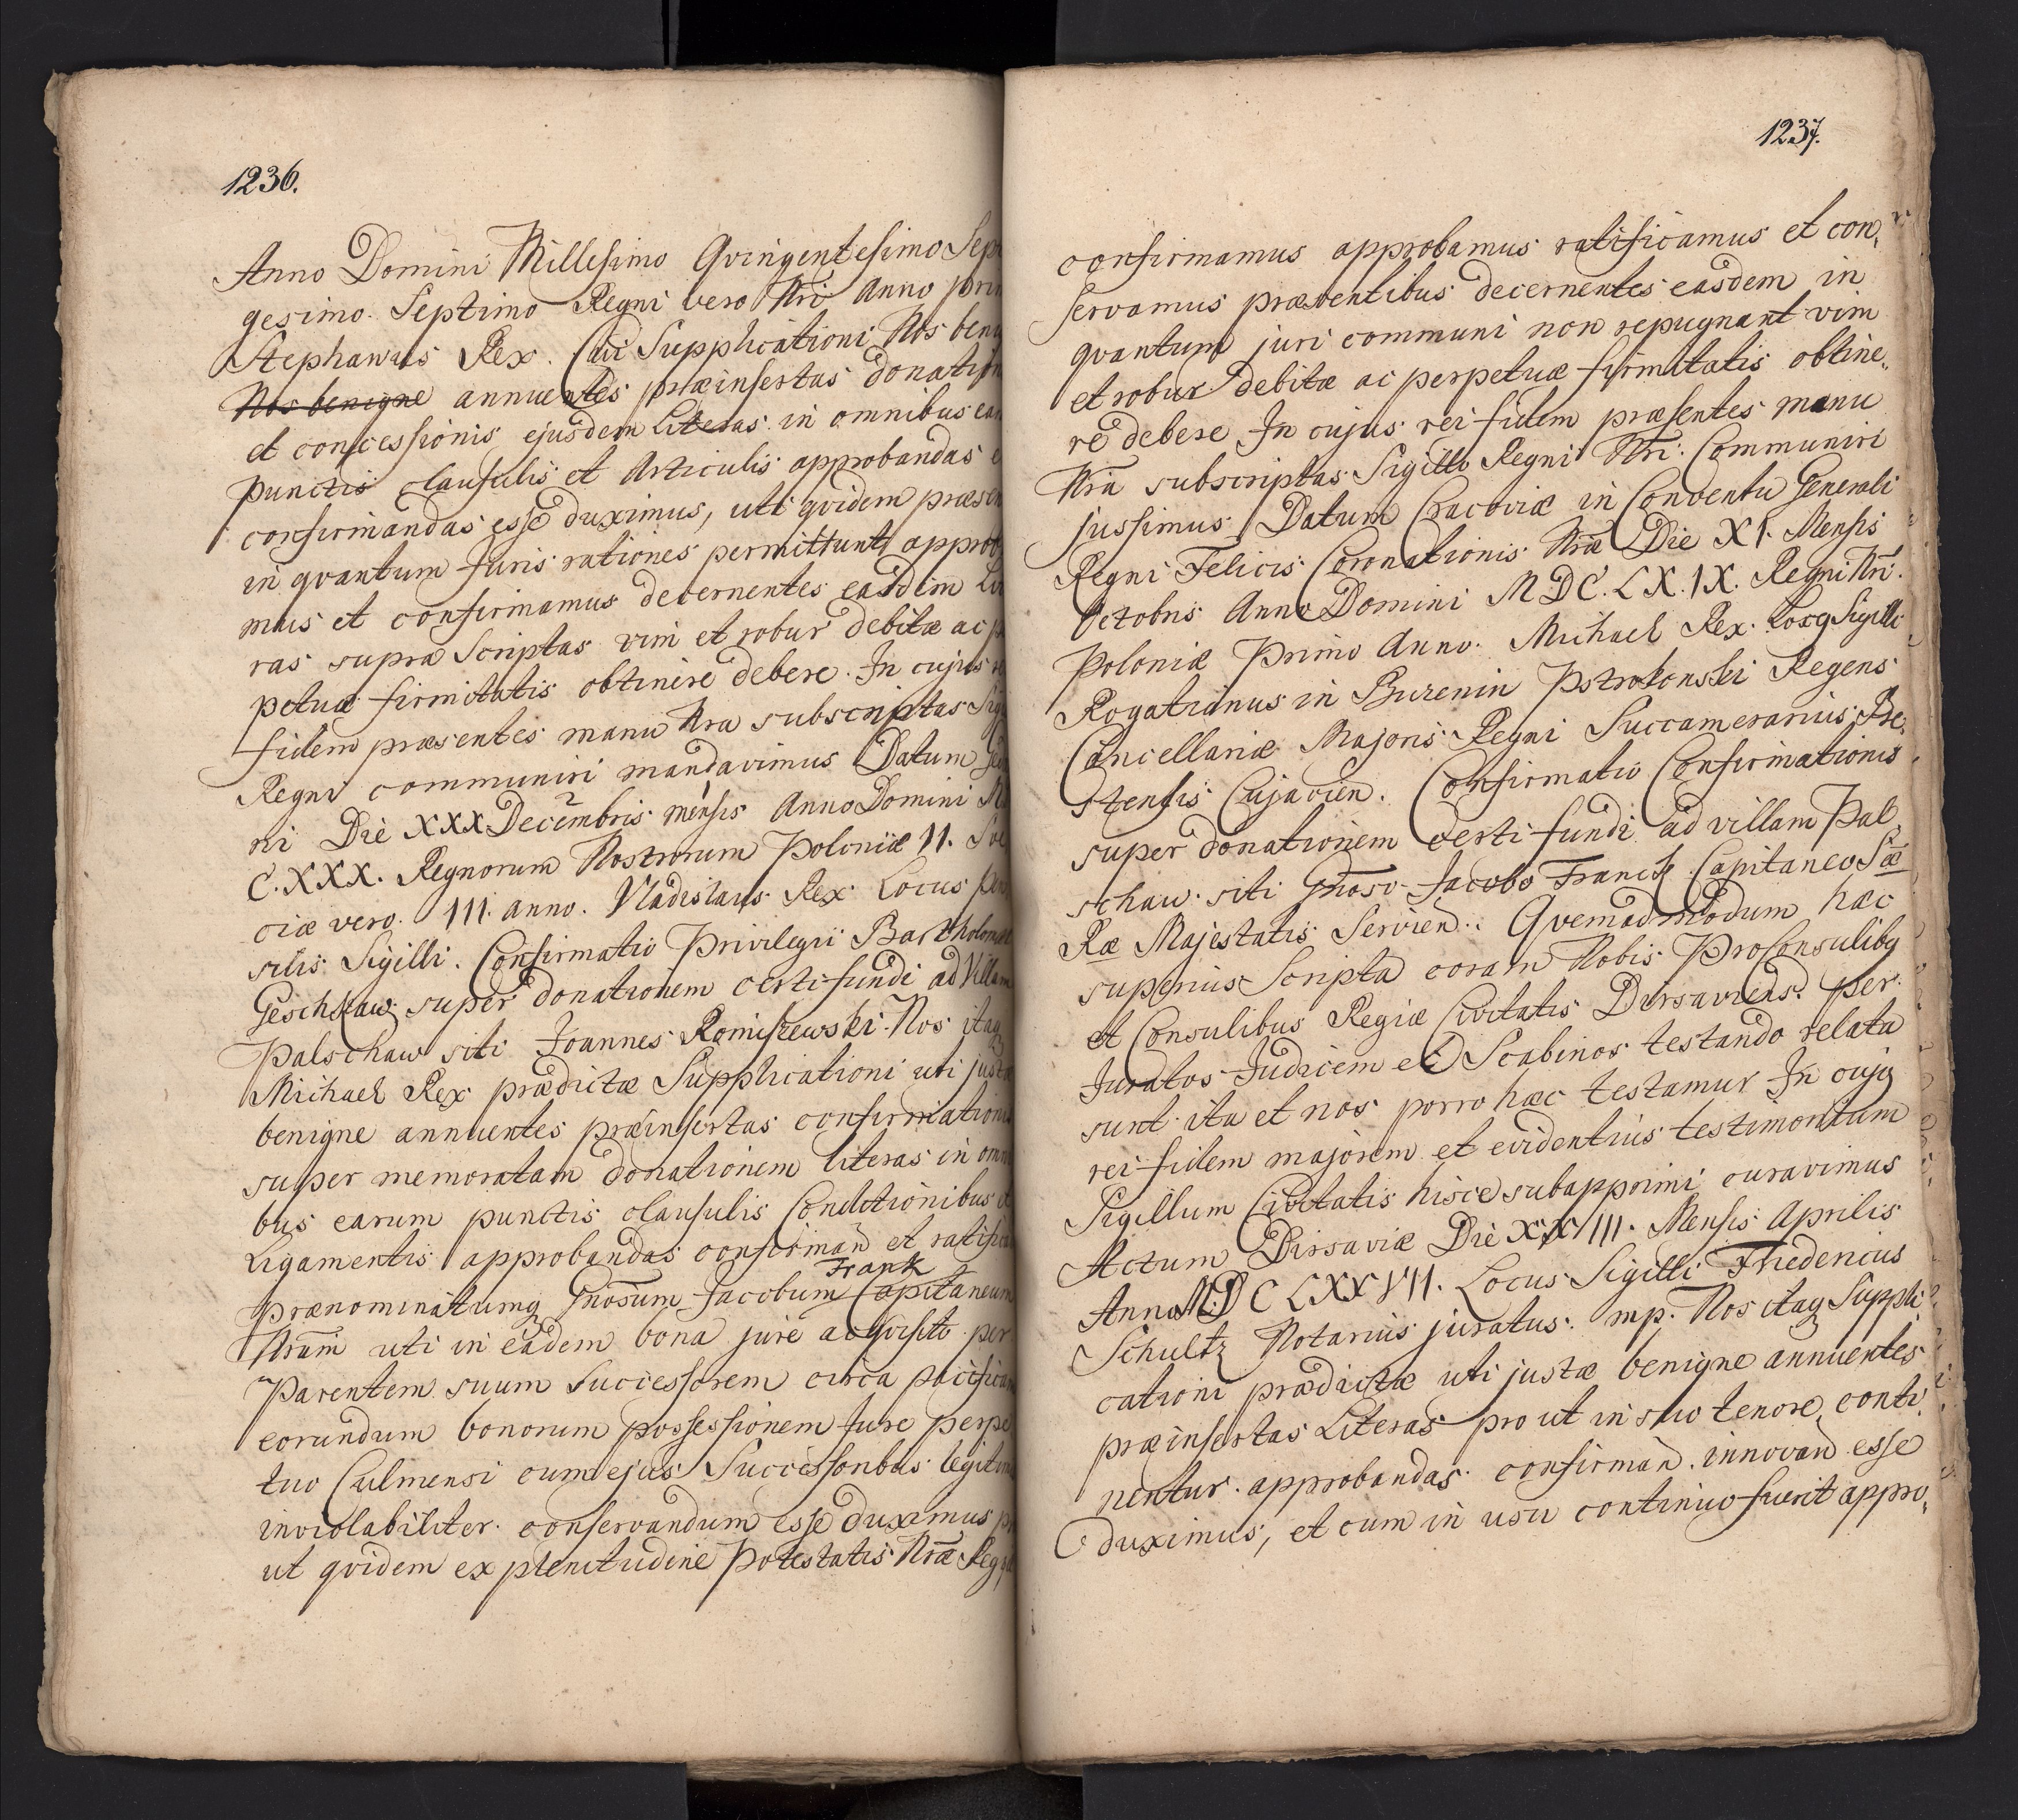 1236.
Anno Domini Millesimo Qvingentesimo Sep
gesimo Septimo Regni vero Nri Anno pri
Stephanus Rex. Cui Supplicationi Nos beni
Nos benigne annuentes præinsertas donation
et concessionis ejusdem Literas in omnibus ear
punctis clausulis et Articulis approbandas e
confirmandas esse duximus, uti qvidem præsen
in qvantum Juris rationes permittunt approb
mus et confirmamus decernentes easdem Lit
ras supra Scriptas vim et robur debitæ ac p
petuæ firmitatis obtinere debere. In cujus r
fidem præsentes manu Nra subscriptas Sig
Regni communiri mandavimus Datum
ni Die XXX Decembris mensis Anno Domini M
C.XXX. Regnorum Nostrorum Poloniæ II. Sve
ciæ vero. III. anno. Vladislaus Rex Locus pen
silis Sigilli. Confirmatio Privilegii Bartholomæi
Geschkaw super donationem certi fundi ad Villam
Palschaw siti Joannes Romiszewski. Nos itaq
Michael Rex prædictæ Supplicationi uti justæ
benigne annuentes præinsertas confirmationis
super memoratam donationem literas in omni
bus earum punctis clausulis Conditionibus et
Ligamentis approbandas confirmand et ratifica
Frank
prænominatumq Gnosum Jacobum Capitaneum
Nram uti in eadem bona jure acqvisito per
Parentem suum Successorem circa pacificam
eorundum bonorum possessionem Jure perpe
tuo Culmensi cum ejus Successoribus legitim
inviolabiliter conservandum esse duximus p
ut qvidem ex plenitudine Potestatis Nræ Reg
1237.
confirmamus approbamus ratificamus et con,
servamus præsentibus decernentes easdem in
qvantum juri communi non repugnant vim
et robur debitæ ac perpetuæ firmitatis obtine,
re debere In cujus rei fidem præsentes manu
Nra subscriptas Sigillo Regni Nri Communiri
jussimus Datum Cracoviæ in Conventu Generali
Regni Felicis Coronationis Nræ Die XI. Mensis
Octobris Anno Domini MDC.LX.IX. Regni Nri.
Poloniæ Primo Anno. Michael Rex. Locq Sigilli
Rogatianus in Burenin Pstrokonski Regens
Cancellariæ Majoris Regni Succamerarius Bre,
stensis Cujavien. Confirmatio Confirmationis
super donationem certi fundi ad villam Pal
schaw siti Gnoso Jacobo Franck Capitaneo Sæ
Ræ Majestatis Servien. Qvemadmodum hæc
superius Scripta coram Nobis ProConsulibq
et Consulibus Regiæ Civitatis Dirsaviens. per
Juratos Judicem et Scabinos testando relata
sunt ita et nos porro hæc testamur In cujq
rei fidem majorem et evidentius testimonium
Sigillum Civitatis hisce subapprimi curavimus
Actum Dirsaviæ Die XXIII. Mensis Aprilis
Anno M.D C LXXVII. Locus Sigilli Friedericus
Schultz Notarius juratus. mp. Nos itaq Suppli
cationi prædictæ uti justæ benigne annuentes
præinsertas Literas pro ut in suo tenore conti
nentur approbandas confirmand. innovand esse
duximus, et cum in usu continuo fuerit appro,